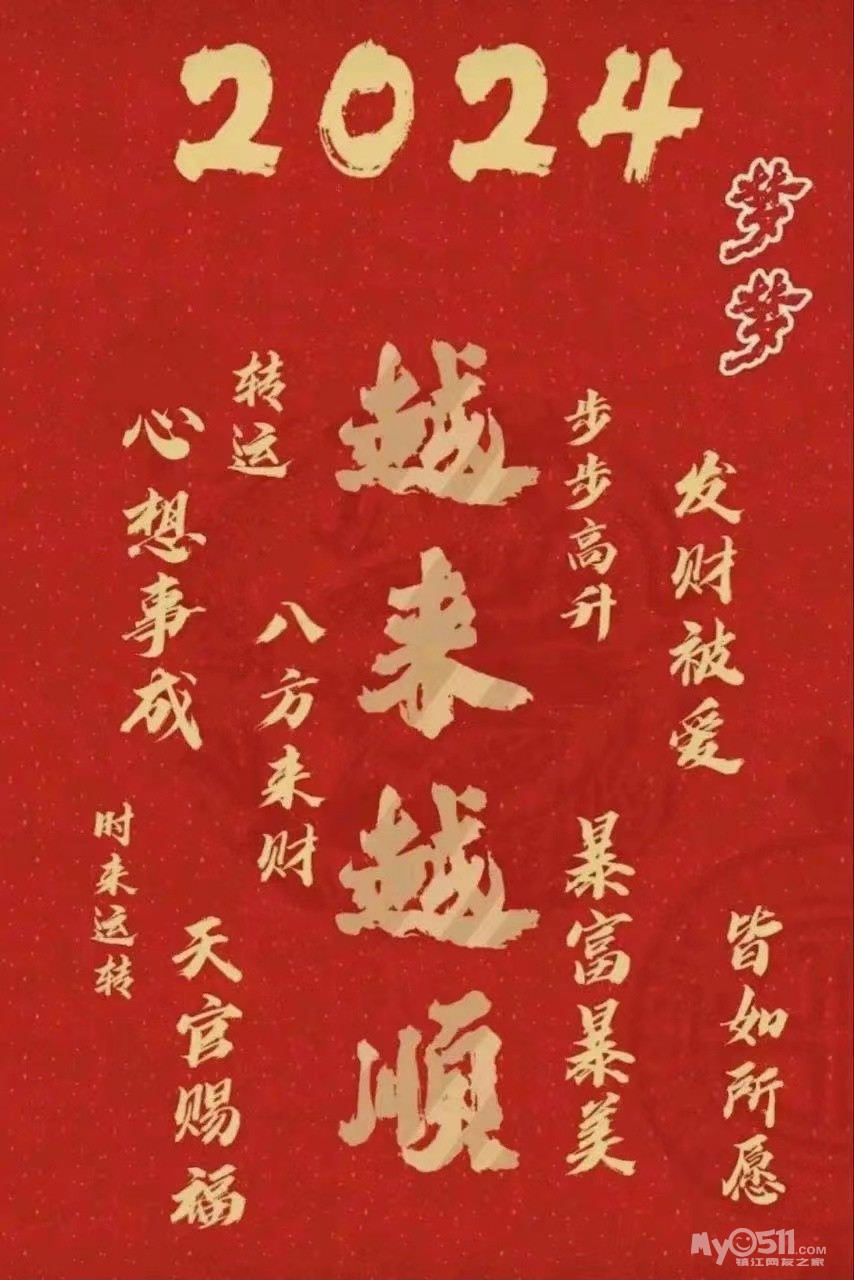 2024
梦梦
转运
心想事成
越来越顺
步步高升
发财被爱
八方来财
时来运转
天官赐福
暴富暴美
皆如所愿
My0511.COM
镇江网友之家